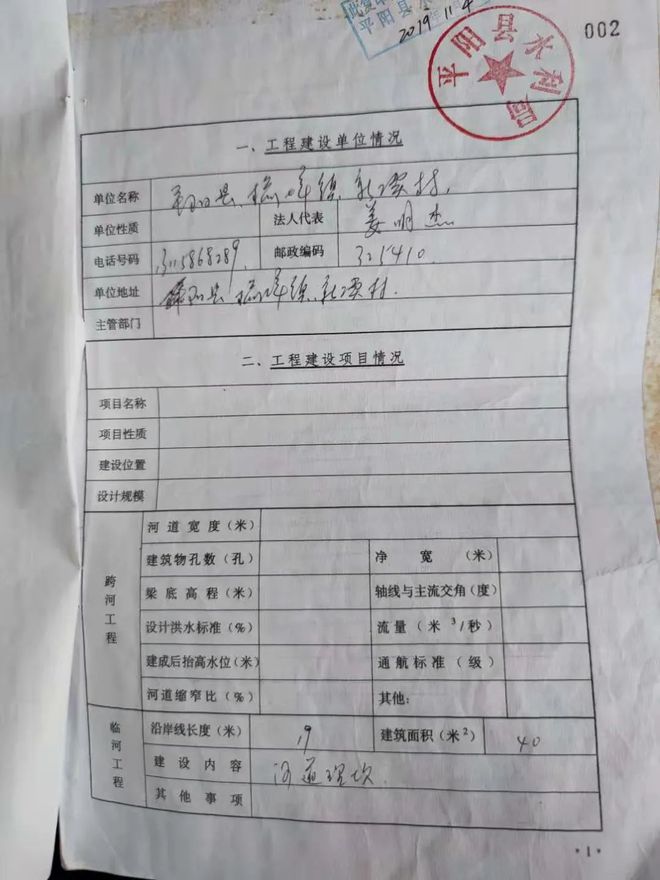 平阳县
2019.11.4
平阳县水利局
002
一、工程建设单位情况
单位名称 平阳县
单位性质 法人代表 姜明杰
电话号码 邮政编码 325410
单位地址 平阳县
主管部门
二、工程建设项目情况
项目名称
项目性质
建设位置
设计规模
跨河工程
河道宽度(米)
建筑物孔数(孔) 净宽(米)
梁底高程(米) 轴线与主流交角(度)
设计洪水标准(%) 流量(米³/秒)
建成后抬高水位(米) 通航标准(级)
河道缩窄比(%) 其他:
临河工程
沿岸线长度(米) 19 建筑面积(米²) 40
建设内容 河道
其他事项
*1*